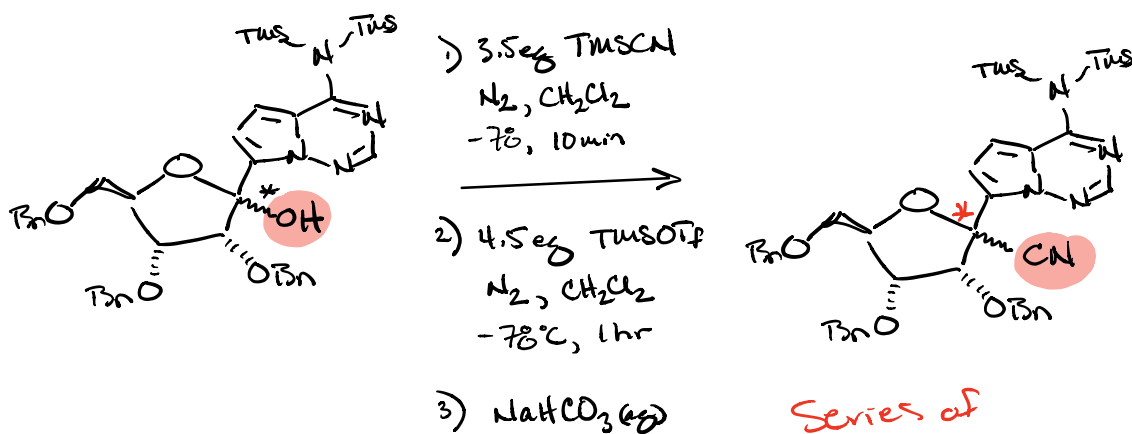 TMS N TMS
N
N N
O
BnO * OH
BnO OBn
1) 3.5eq TMSCN
N2, CH2Cl2
-78, 10min
2) 4.5eq TMSOTf
N2, CH2Cl2
-78°C, 1hr
3) NaHCO3(aq)
TMS N TMS
N
N N
O
BnO * CN
BnO OBn
Series of